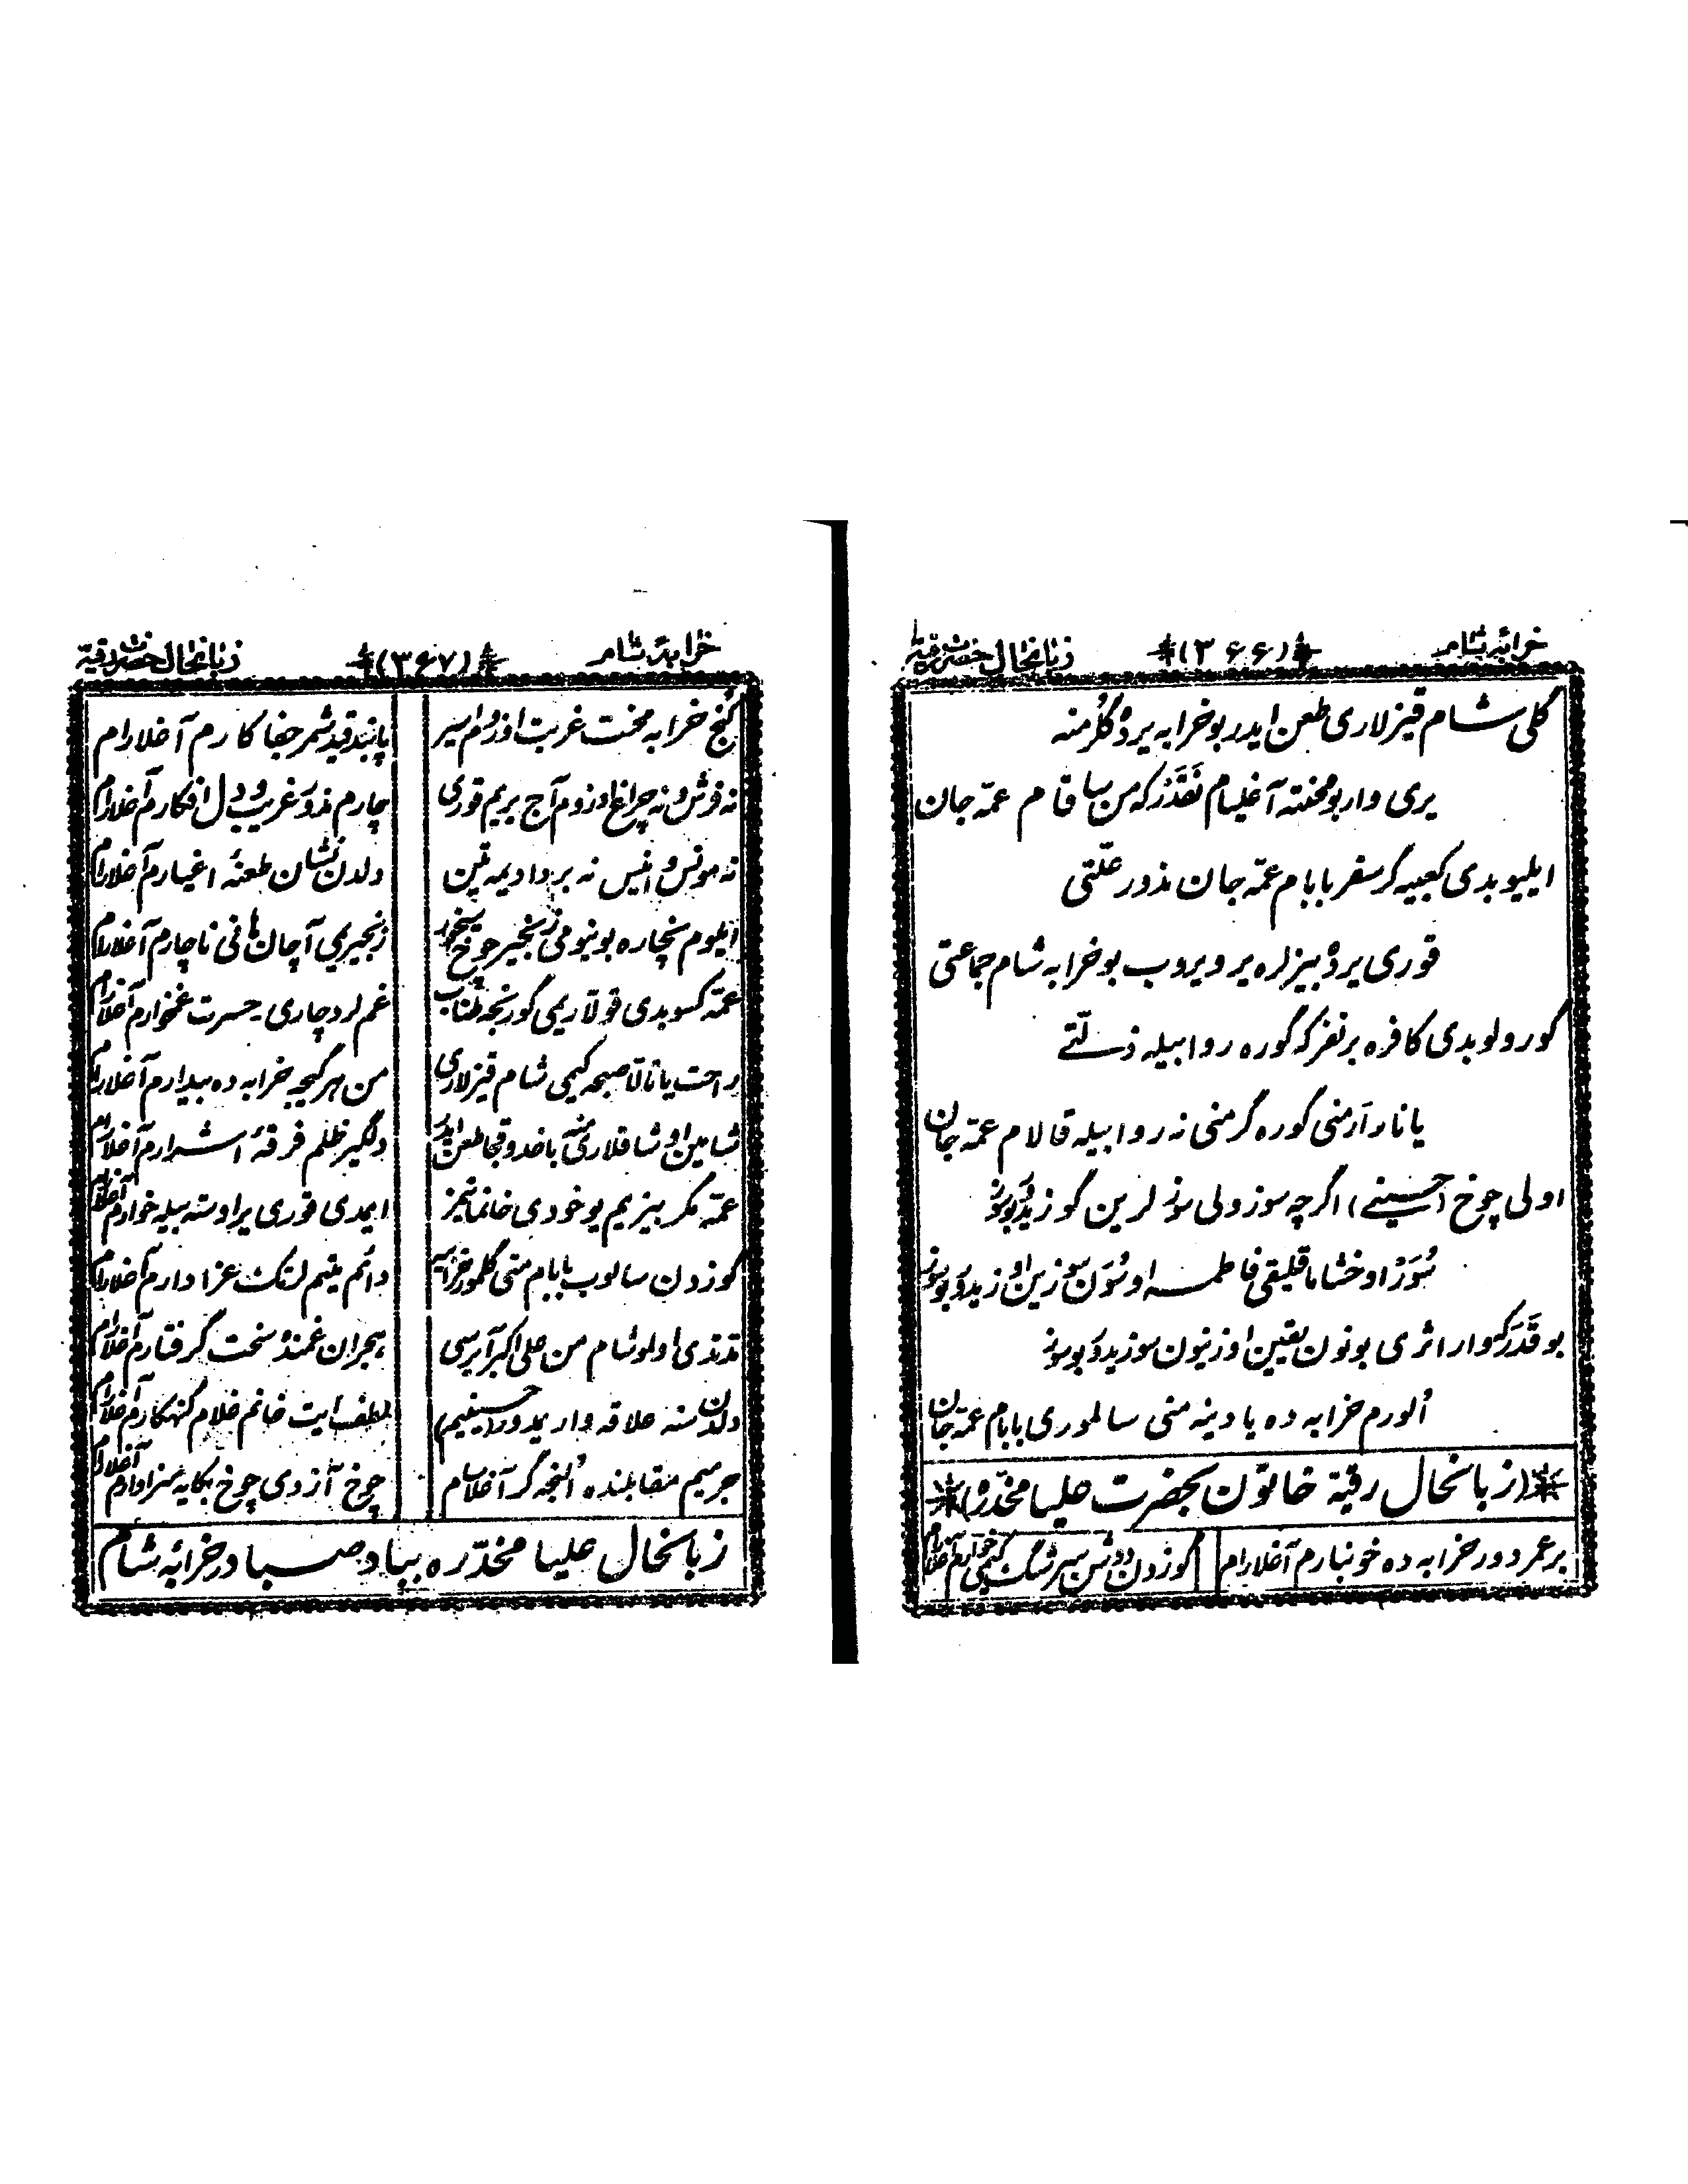 خرابهٔ شام (۳۶۶) زبانحال حضرت رقیّه
گلی شام قیزلاری طعن ایدر بو خرابه یرده گلر منه
یری وار بو محنته آغلیام نقدر که من ساقام عمّه جان
ایلیوبدی کعبیه گر سفر بابام عمّه جان ندور علّتی
قوری یرده بیزلره یر ویروب بو خرابه شام جماعتی
کور اولوبدی کافره بر نفر که گوره روا بیله ذلّتی
یانار آدمنی گوره گر منی نه روا بیله قالام عمّه جان
اولی چوخ (حسینی) اگرچه سوز ولی سوزلرین گوزیدو بو سوز
سوز اوخشاماقلیقی فاطمه اوسون سوزین اوزیدو بو سوز
بو قدر که وار اثری بونون یقین اوزنون سوزیدو بو سوز
الورم خرابه ده یادینه منی سالموری بابام عمّه جان
(زبانحال رقیّه خاتون بحضرت علیا مخدّره)
بر عمردور خرابه ده خونبارم آغلارام گوزدن دوشن سرشک کیمی خوارم آغلارام
خرابهٔ شام (۳۶۷) زبانحال حضرت رقیّه
کنج خرابه محنت غربت اوزوم اسیر پابند قید شمر جفا کارم آغلارام
نه فرش و نه چراغ اوزوم آج یریم قوری چارم ندور غریب و دل افکارم آغلارام
نه مونس و انیس نه بر دادیمه یتن دلدن نشان طعنهٔ اغیارم آغلارام
ایلیوم نه چاره بوینومی زنجیر چوخ سیخور زنجیریمی آچان هانی ناچارم آغلارام
عمّه کسوبدی قوللاریمی گور نجه طناب غملر دچاری حسرت غمخوارم آغلارام
راحت یاتالا صبحه کیمی شام قیزلاری من هر گیجه خرابه ده بیدارم آغلارام
شامین اوشاقلاری منه باخدوقجا طعن ایدر دلگیر ظلم فرقهٔ اشرارم آغلارام
عمّه مگر بیزیم یوخودی خانمانیمز ایمدی قوری یر اوسته بیله خوارم آغلارام
گوزدن سالوب بابام منی گلمور خرابیه دائم یتیم لنگ عزادارم آغلارام
تذندی اولو شام من علی اکبر آیرسی هجران غمنده سخت گرفتارم آغلارام
دلدن سنه علاقه وار یدور (حسینیم) لطف ایت خانم غلام گنهکارم آغلارام
جرمیم مقابلنده النجه گر آغلاسام چوخ آزدی چوخ بکایه سزاوارم آغلارام
زبانحال علیا مخدّره بباد صبا در خرابهٔ شام